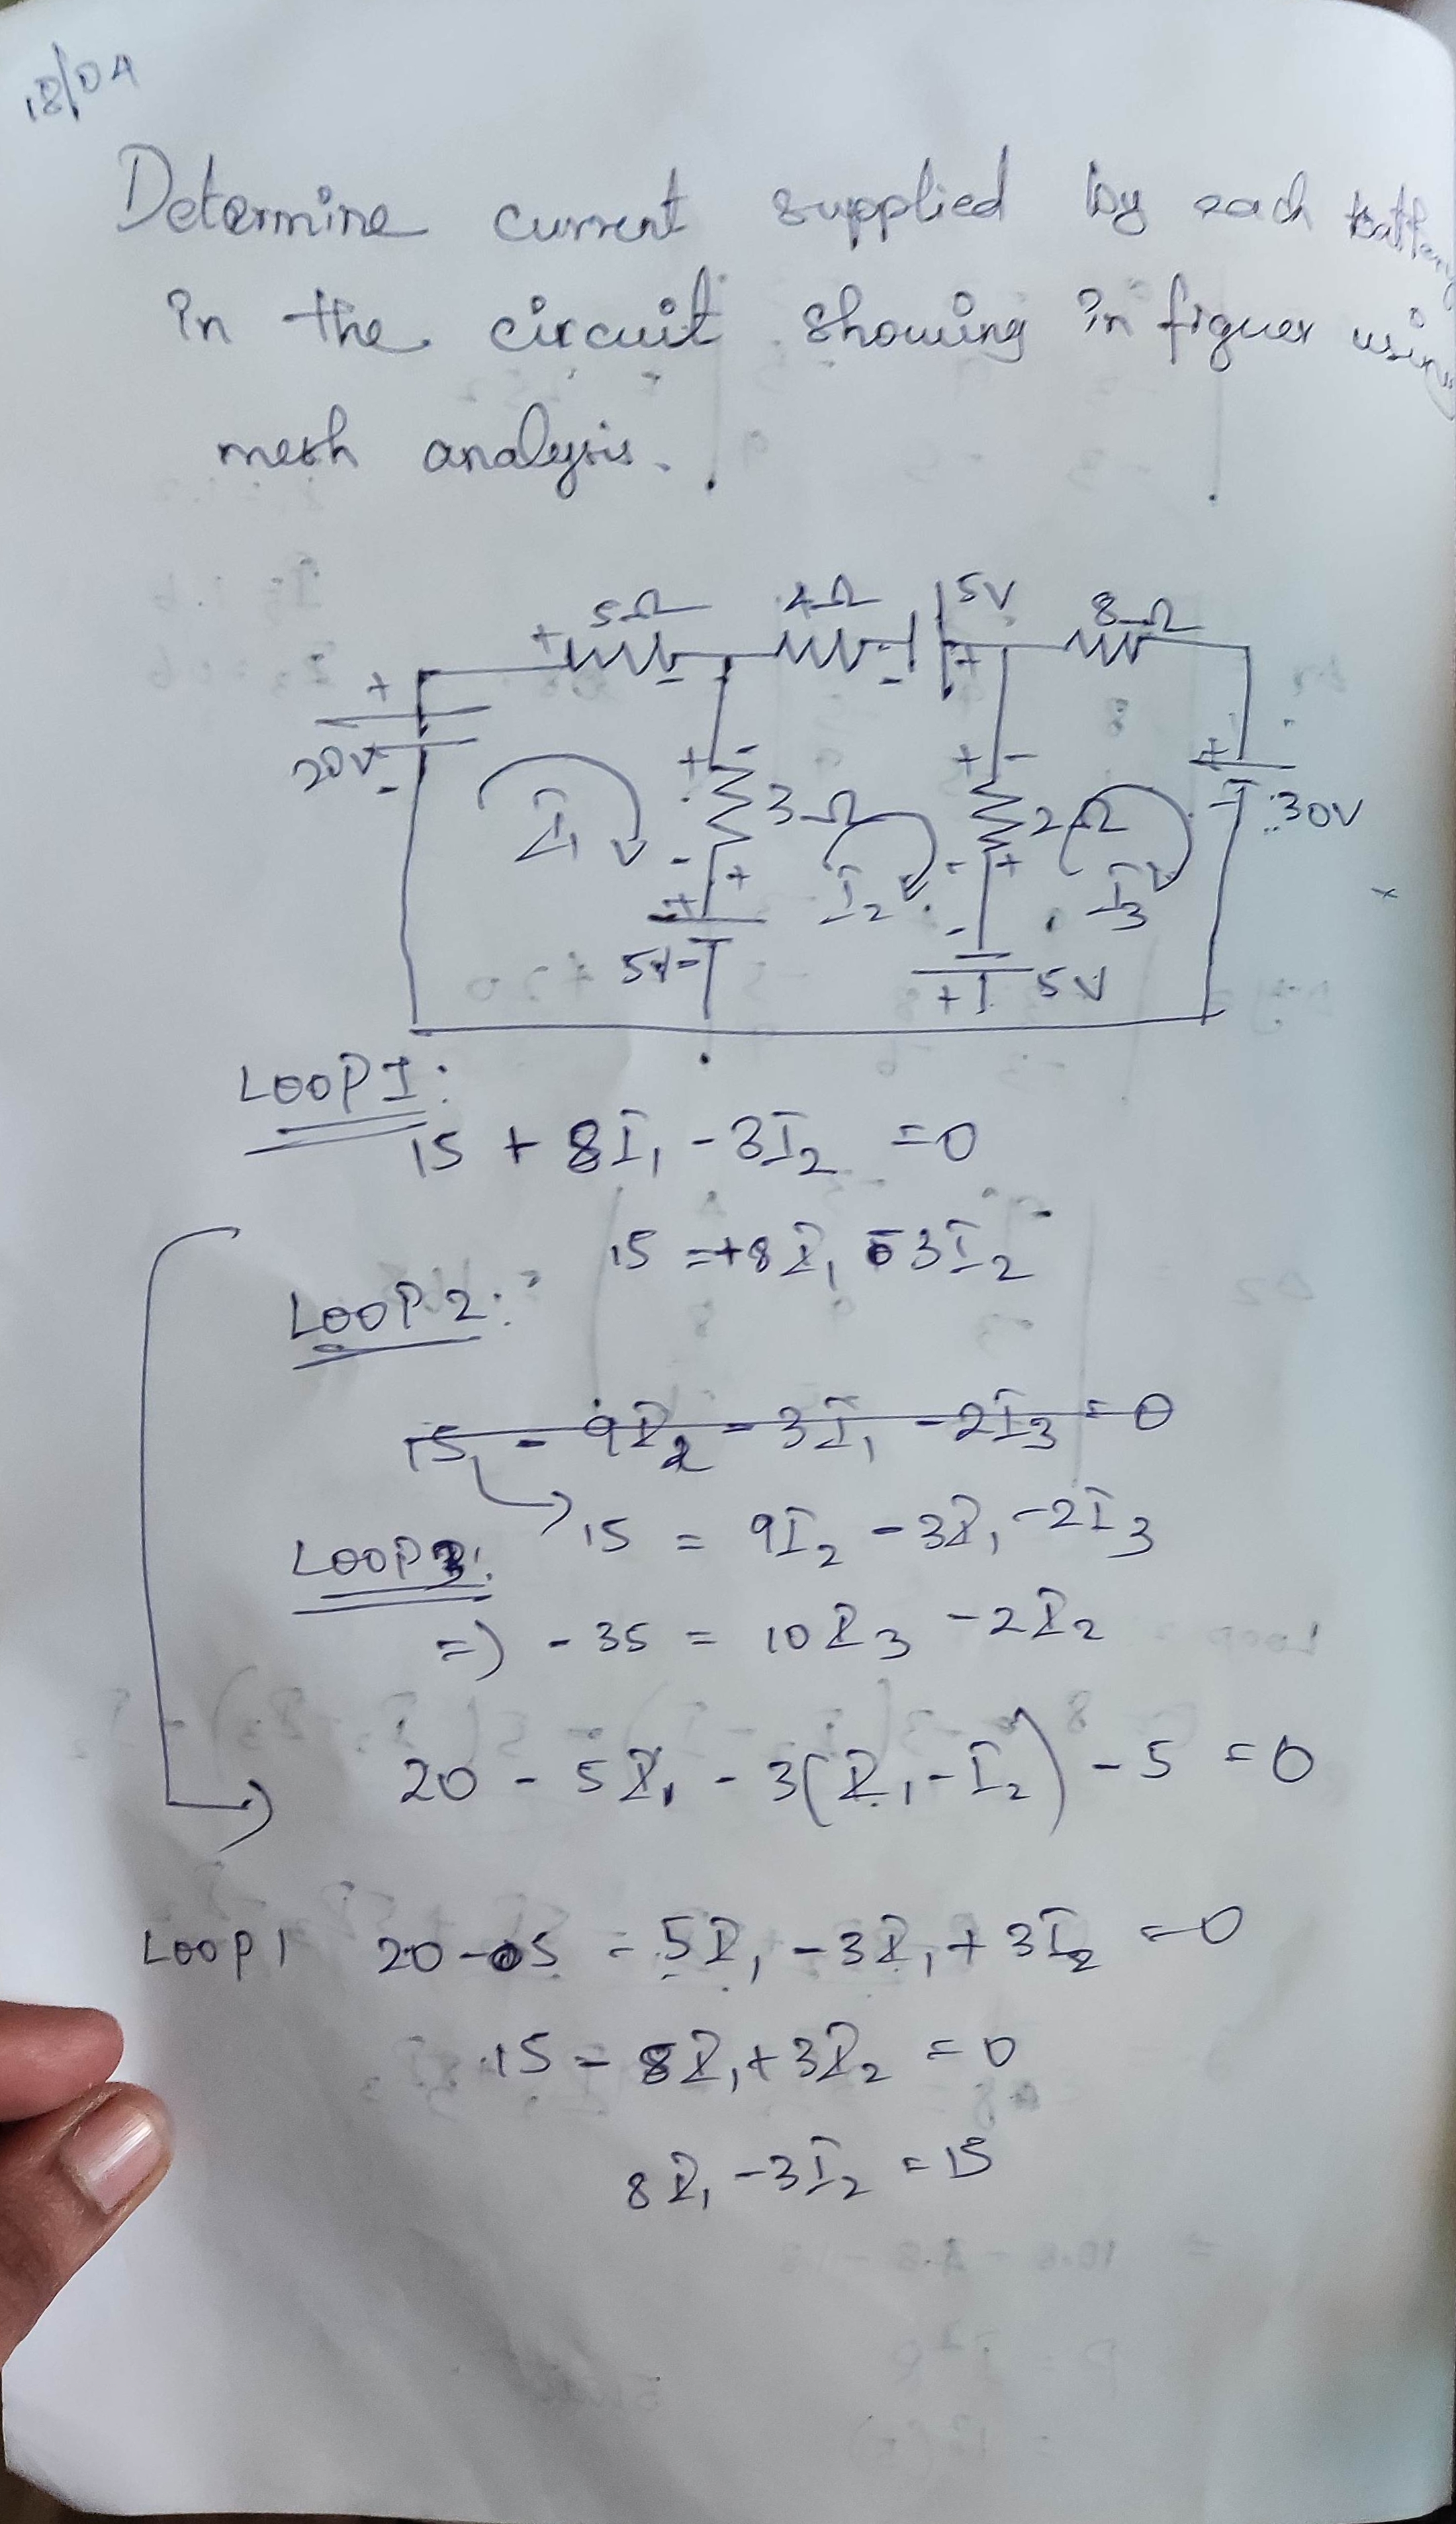 18/04
Determine current supplied by each battery
in the circuit showing in figuer using
mesh analysis.
5Ω 4Ω 5V 8Ω
+ - - + 
+ 20V -
I1 3Ω I2 2Ω I3
+ - 30V
5V 5V
LOOP 1:
15 + 8I1 - 3I2 = 0
15 = +8I1 - 3I2
LOOP 2:
15 - 9I2 - 3I1 - 2I3 = 0
15 = 9I2 - 3I1 - 2I3
LOOP 3:
=) - 35 = 10I3 - 2I2
20 - 5I1 - 3(I1 - I2) - 5 = 0
LOOP 1 20 - 5 - 5I1 - 3I1 + 3I2 = 0
15 - 8I1 + 3I2 = 0
8I1 - 3I2 = 15